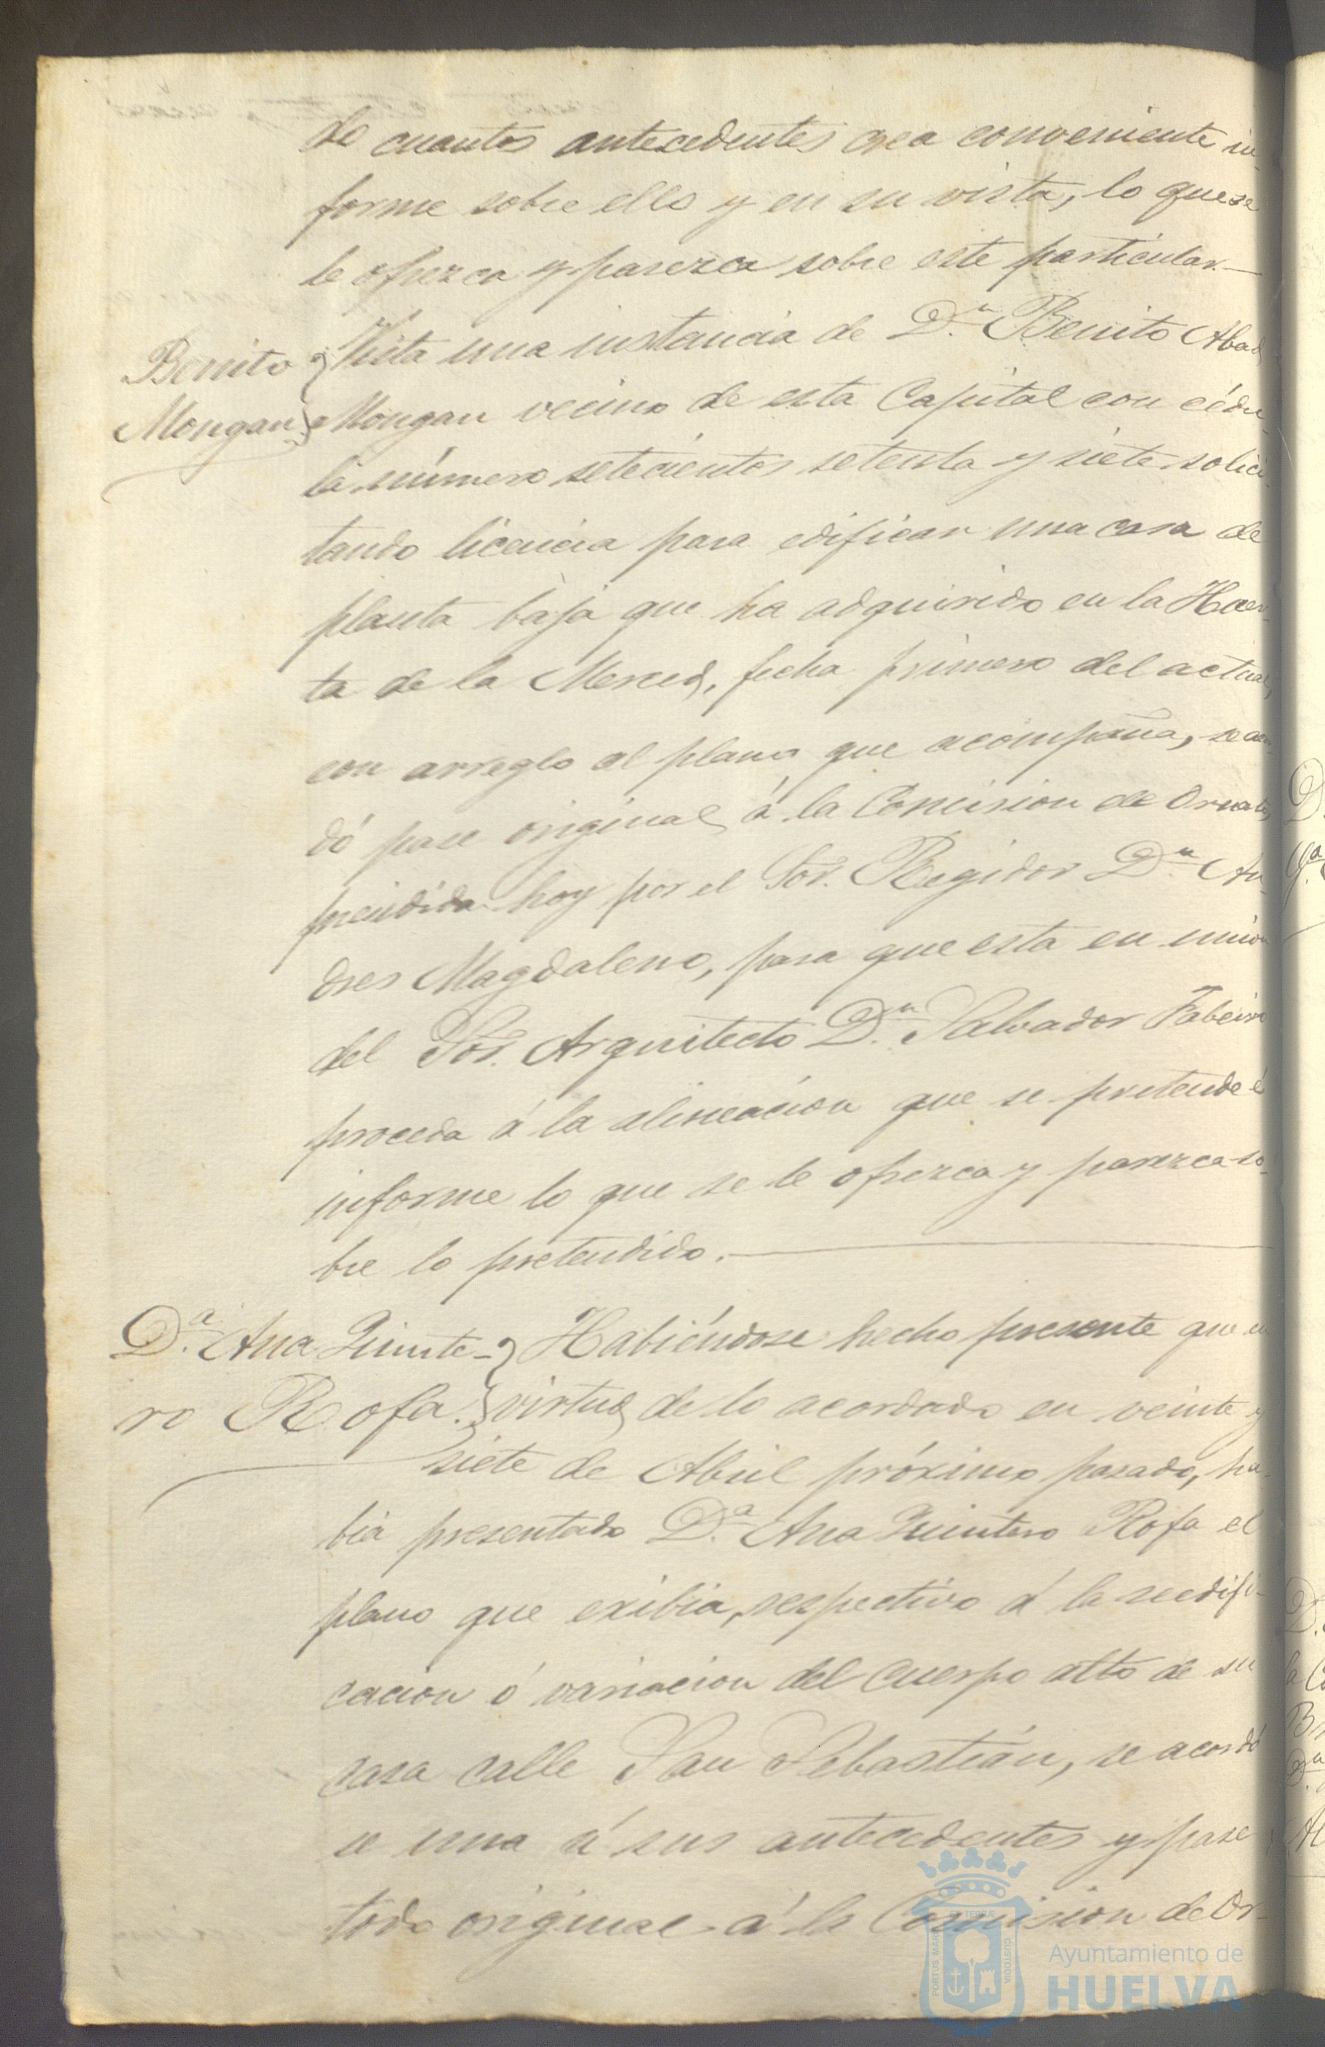 de cuantos antecedentes crea conveniente in-
forme sobre ello y en su vista, lo que se
le ofrezca y parezca sobre este particular.—
Benito
Mongan
Vista una instancia de D.n Benito Abad
Mongan vecino de esta Capital con cédu-
la número setecientos setenta y siete solici-
tando licencia para edificar una casa de
planta baja que ha adquirido en la Huer-
ta de la Merced, fecha primero del actual,
con arreglo al plano que acompaña, se acor
dó pase original á la Comision de Ornato,
precidida hoy por el Sor. Regidor D.n An-
dres Magdaleno, para que esta en union
del Sor. Arquitecto D.n Salvador
proceda á la alineacion que se pretende é
informe lo que se le ofrezca y parezca so-
bre lo pretendido.—
D.a Ana Quinte-
ro Rofa.
Habiéndose hecho presente que en
virtud de lo acordado en veinte y
siete de Abril próximo pasado, ha-
bia presentado D.a Ana Quintero Rofa el
plano que exibia, respectivo á la reedifi-
cacion ó variacion del cuerpo alto de su
casa calle San Sebastián, se acordó
se una á sus antecedentes y pase
todo original á la Comision de Or-
Ayuntamiento de
HUELVA